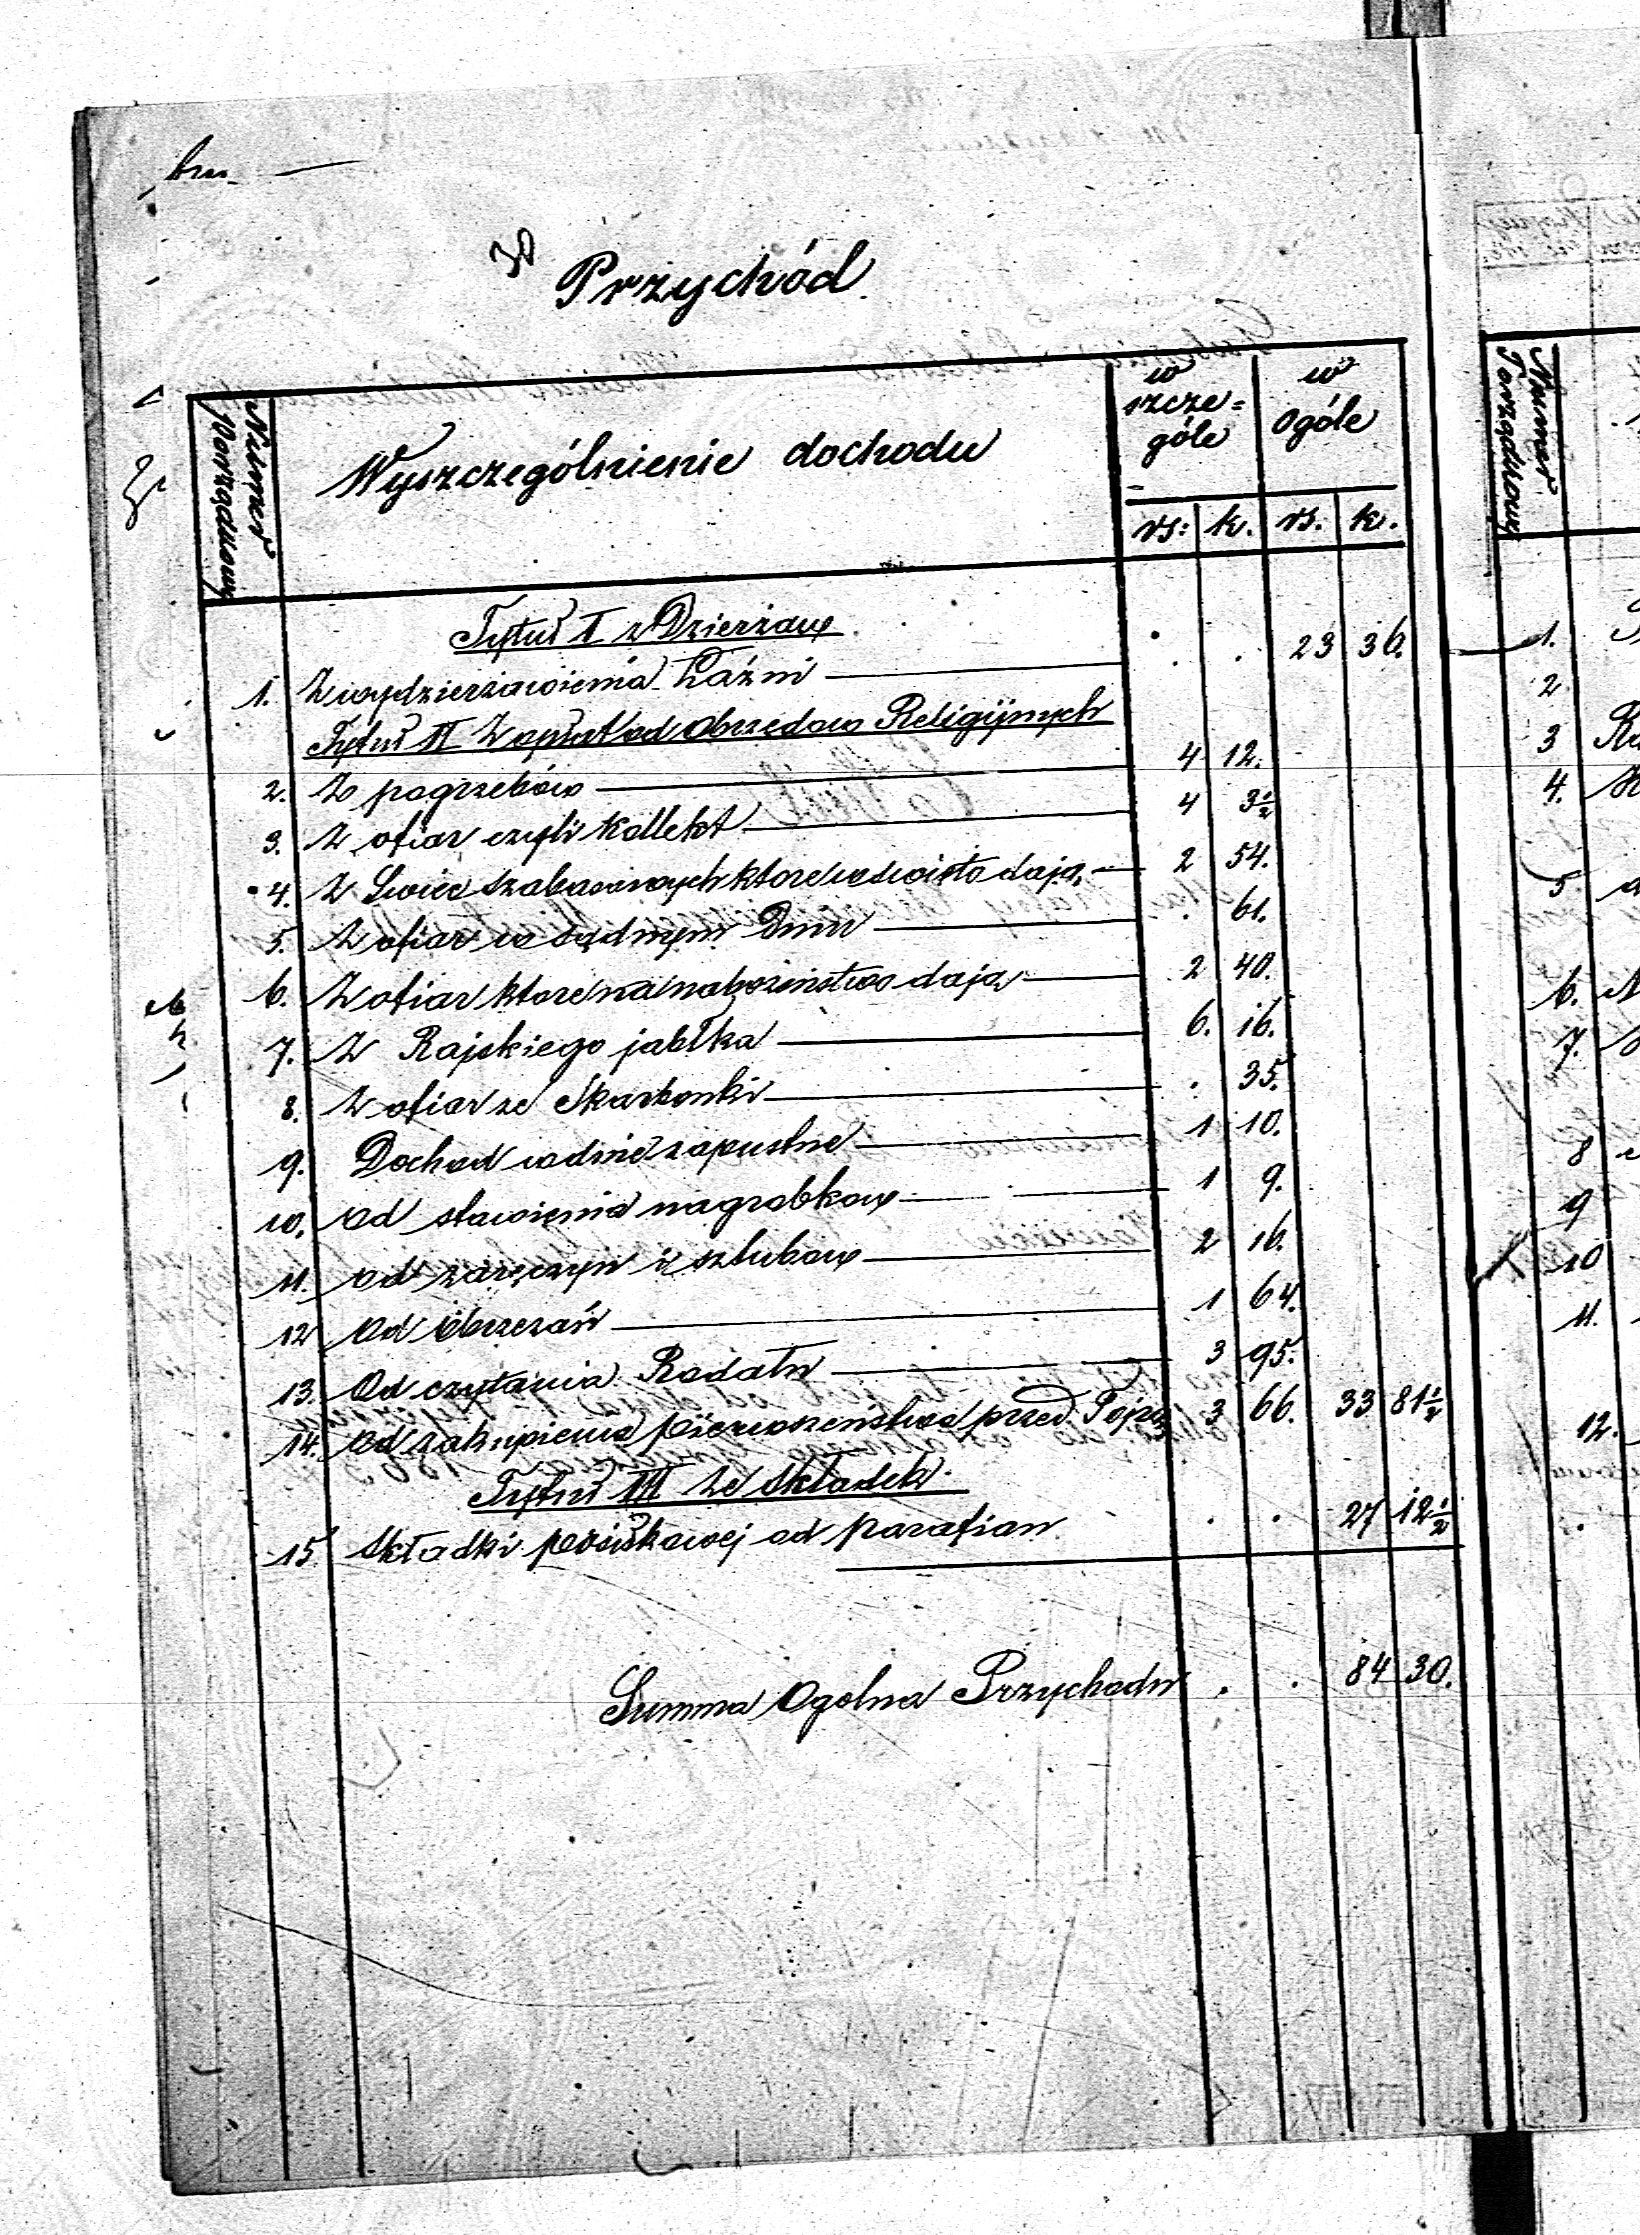 Przychód
Numer Porządkowy
Wyszczególnienie dochodu
w szcze=
góle
w
ogóle
rs: k. rs. k.
Tytuł I z Dzierżaw
1. Z wydzierżawienia Łaźni . . 23 36.
Tytuł II Z opłat od Obrzędow Religijnych
2. Z pogrzebów 4 12.
3. Z ofiar czyli kollekt 4 3½
4. Z Swiec szabasowych ktore w swieto dają 2 54.
5. Z ofiar w sądnym Dniu . 61.
6. Z ofiar ktore na nabożenstwo dają 2 40.
7. Z Rajskiego jabłka 6. 16.
8. Z ofiar ze Skarbonki . 35.
9. Dochod w dnie zapustne 1 10.
10. Od stawienia nagrobkow 1 9.
11. Od zaręczyn i szlubow 2 16.
12 Od Obrzezań 1 64.
13. Od czytania Rodału 3 95.
14. Od zakupienia pierwszeństwa przed 3 66. 33 81½
Tytuł III Ze składek.
15. Składki od parafian . . 27 12½
Summa Ogolna Przychodu . . 84 30.
Numer
Porządkowy
1.
2
3
4.
5
6.
7.
8
9
10
11.
12.